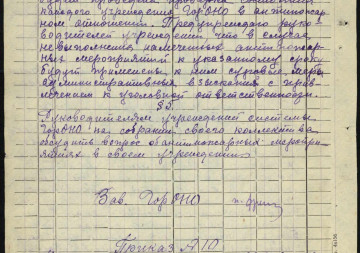 каждого учреждения ГорОНО в антипожар-
ном отношении. Предупреждаю руко-
водителей учреждений, что в случае
невыполнения намеченных антипожар-
ных мероприятий к указанному сроку
будут применены к ним суровые меры
административных взысканий и прив-
лечения к уголовной ответственности.
§5
Руководителям учреждений системы
ГорОНО на собрании своего коллектива
обсудить вопрос о антипожарных меропри-
ятиях в своем учреждении.
Зав. ГорОНО
Приказ №10.